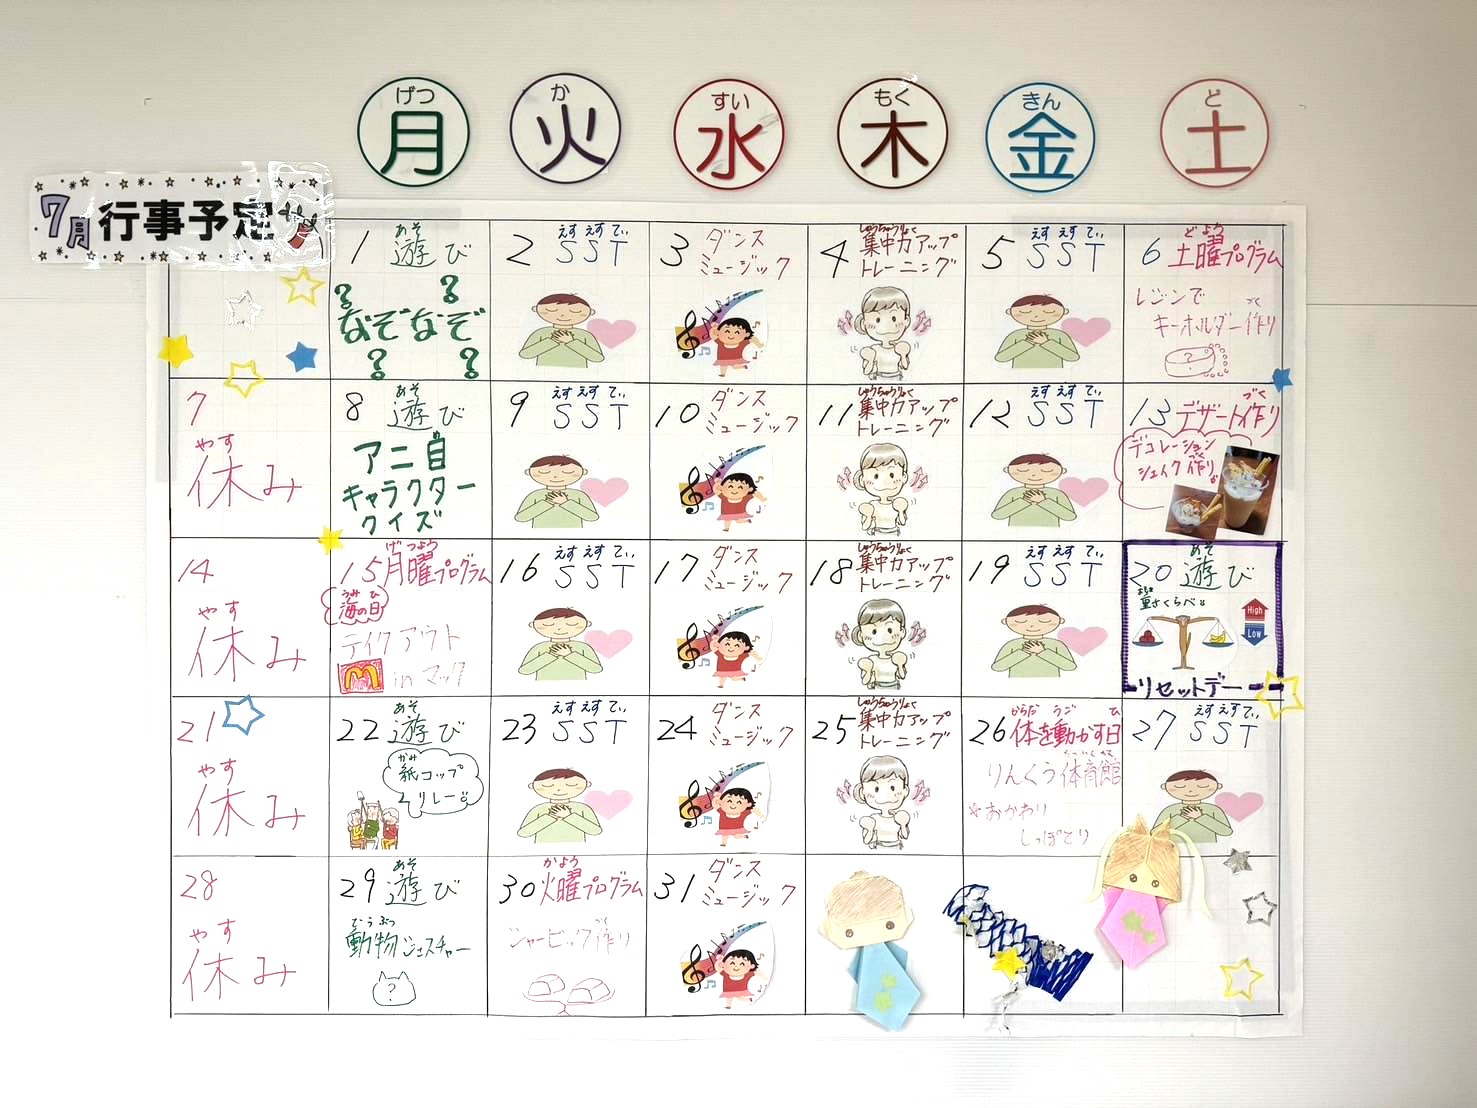 げつ
月
か
火
すい
水
もく
木
きん
金
ど
土
7月 行事予定
1 遊び
あそ
? ?
なぞなぞ
? ?
2 SST
えす えす てぃ
3 ダンス
ミュージック
4 集中力アップ
しゅうちゅうりょく
トレーニング
5 SST
えす えす てぃ
6 土曜プログラム
どよう
レジンで
キーホルダー作り
づく
?
7
やす
休み
8 遊び
あそ
アニ自
め
キャラクター
クイズ
9 SST
えす えす てぃ
10 ダンス
ミュージック
11 集中力アップ
しゅうちゅうりょく
トレーニング
12 SST
えす えす てぃ
13 デザート作り
づく
デコレーション
シェイク作り
づく
14
やす
休み
15 月曜プログラム
げつよう
うみ ひ
海の日
テイクアウト
M in マック
16 SST
えす えす てぃ
17 ダンス
ミュージック
18 集中力アップ
しゅうちゅうりょく
トレーニング
19 SST
えす えす てぃ
20 遊び
あそ
重さくらべ
おも
High
Low
リセットデー
21
やす
休み
22 遊び
あそ
かみ
紙コップ
リレー
23 SST
えす えす てぃ
24 ダンス
ミュージック
25 集中力アップ
しゅうちゅうりょく
トレーニング
26 体を動かす日
からだ うご ひ
りんくう体育館
たいいくかん
*おかわり
しっぽとり
27 SST
えす えす てぃ
28
やす
休み
29 遊び
あそ
どうぶつ
動物ジェスチャー
?
30 火曜プログラム
かよう
シャービック作り
づく
31 ダンス
ミュージック